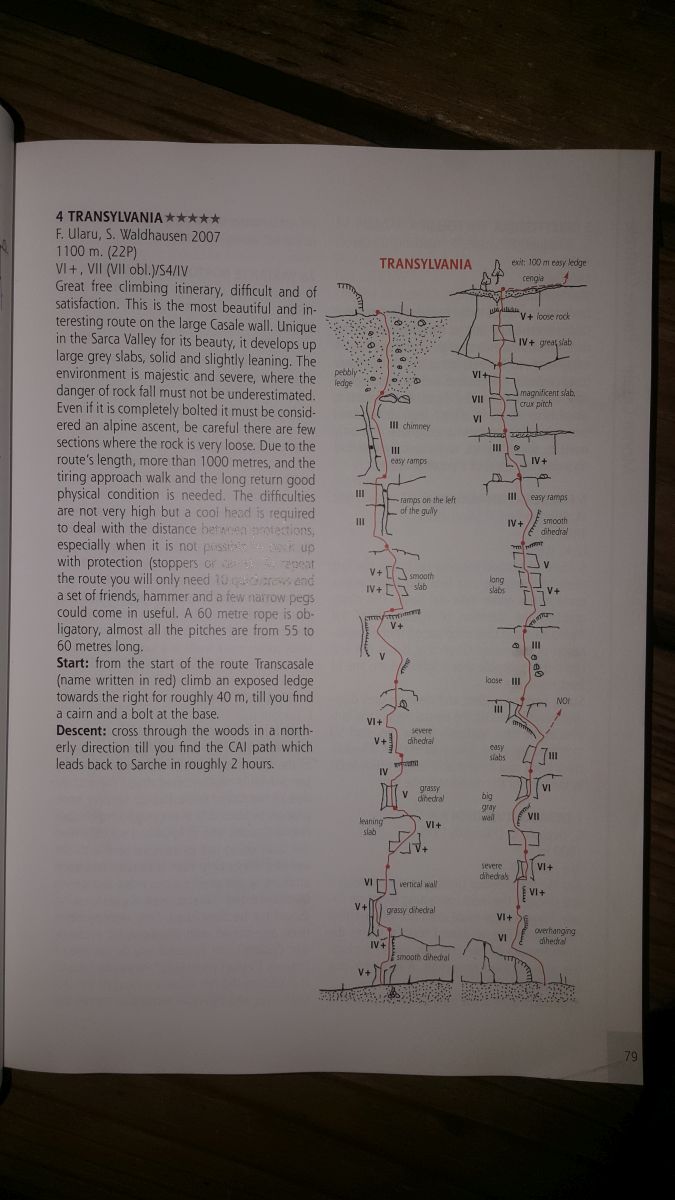 4 TRANSYLVANIA★★★★★
F. Ularu, S. Waldhausen 2007
1100 m. (22P)
VI+, VII (VII obl.)/S4/IV
Great free climbing itinerary, difficult and of
satisfaction. This is the most beautiful and in-
teresting route on the large Casale wall. Unique
in the Sarca Valley for its beauty, it develops up
large grey slabs, solid and slightly leaning. The
environment is majestic and severe, where the
danger of rock fall must not be underestimated.
Even if it is completely bolted it must be consid-
ered an alpine ascent, be careful there are few
sections where the rock is very loose. Due to the
route's length, more than 1000 metres, and the
tiring approach walk and the long return good
physical condition is needed. The difficulties
are not very high but a cool head is required
to deal with the distance between protections,
especially when it is not possible up
with protection (stoppers or repeat
the route you will only need 10 quickdraws and
a set of friends, hammer and a few narrow pegs
could come in useful. A 60 metre rope is ob-
ligatory, almost all the pitches are from 55 to
60 metres long.
Start: from the start of the route Transcasale
(name written in red) climb an exposed ledge
towards the right for roughly 40 m, till you find
a cairn and a bolt at the base.
Descent: cross through the woods in a north-
erly direction till you find the CAI path which
leads back to Sarche in roughly 2 hours.
TRANSYLVANIA
pebbly
ledge
III chimney
III
easy ramps
III
ramps on the left
of the gully
III
V+
smooth
slab
IV+
V+
V
VI+
severe
dihedral
V+
IV
grassy
dihedral
V
leaning
slab
VI+
V+
VI
vertical wall
V+
grassy dihedral
IV+
smooth dihedral
V+
exit: 100 m easy ledge
cengia
V+ loose rock
IV+ great slab
VI+
magnificent slab,
crux pitch
VII
VI
III
IV+
III
easy ramps
IV+
smooth
dihedral
V
long
slabs
V+
III
loose III
III
NO!
easy
slabs
III
VI
big
gray
wall
VII
severe
dihedrals
VI+
VI+
VI+
VI
overhanging
dihedral
79